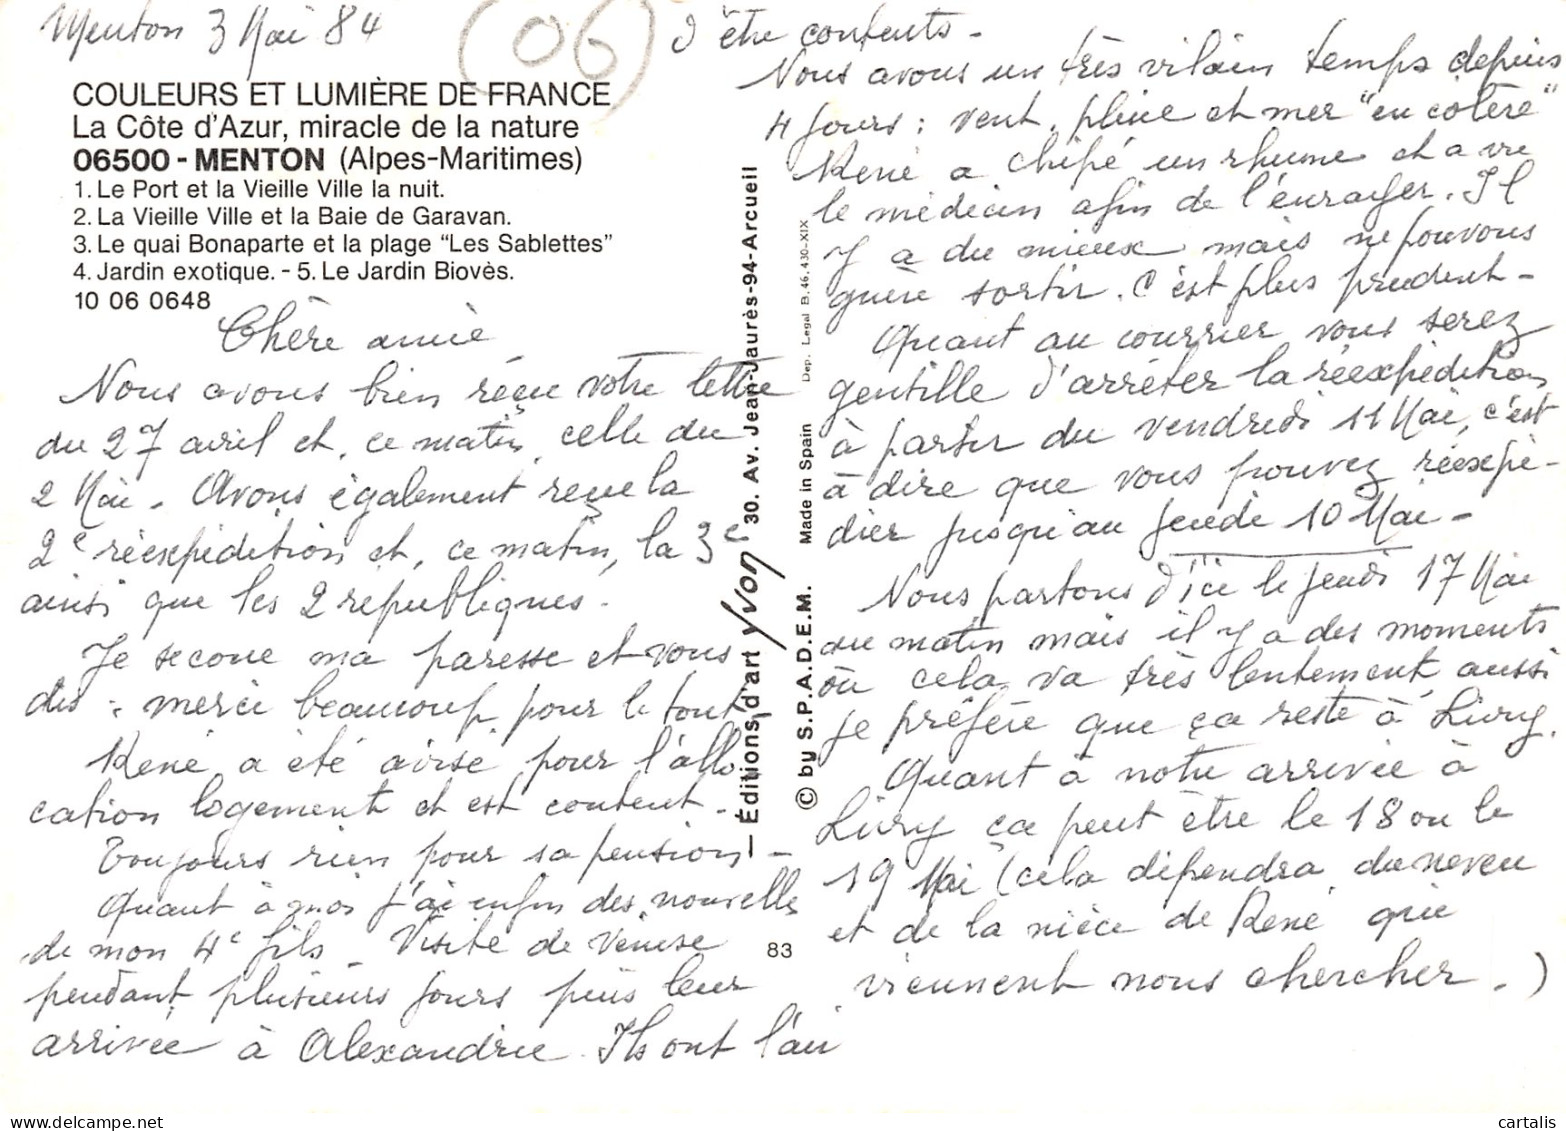 Menton 3 Mai 84
(06)
COULEURS ET LUMIÈRE DE FRANCE
La Côte d'Azur, miracle de la nature
06500 - MENTON (Alpes-Maritimes)
1. Le Port et la Vieille Ville la nuit.
2. La Vieille Ville et la Baie de Garavan.
3. Le quai Bonaparte et la plage "Les Sablettes"
4. Jardin exotique. - 5. Le Jardin Biovès.
10 06 0648
Chère amie,
Nous avons bien reçu votre lettre
du 27 avril et, ce matin, celle du
2 Mai. Avons également reçu la
2e réexpédition et, ce matin, la 3e
ainsi que les 2 republiques.
Je secoue ma paresse et vous
dis : merci beaucoup pour le tout
René a été avisé pour l'allo
cation logement et est content.
Toujours rien pour sa pension -
Quant à moi j'ai enfin des nouvelles
de mon 4e fils - Visite de Venise
pendant plusieurs jours puis leur
arrivée à Alexandrie. Ils ont l'air
— Éditions d'art Yvon 30. Av. Jean-Jaurès-94-Arcueil
© by S.P.A.D.E.M. Made in Spain Dep. Legal B. 46.430-XIX
83
d'être contents -
Nous avons un très vilain temps depuis
4 jours : vent, pluie et mer "en colère"
René a chipé un rhume et a vu
le médecin afin de l'enrayer. Il
y a du mieux mais ne pouvons
guère sortir. C'est plus prudent -
Quant au courrier vous serez
gentille d'arrêter la réexpédition
à partir du vendredi 11 Mai, c'est
à dire que vous pouvez réexpé-
dier jusqu'au jeudi 10 Mai -
Nous partons d'ici le jeudi 17 Mai
au matin mais il y a des moments
où cela va très lentement, aussi
je préfère que ça reste à Livry.
Quant à notre arrivée à
Livry ça peut être le 18 ou le
19 Mai (cela dépendra du neveu
et de la nièce de René qui
viennent nous chercher.)
cartalis
delcampe.net